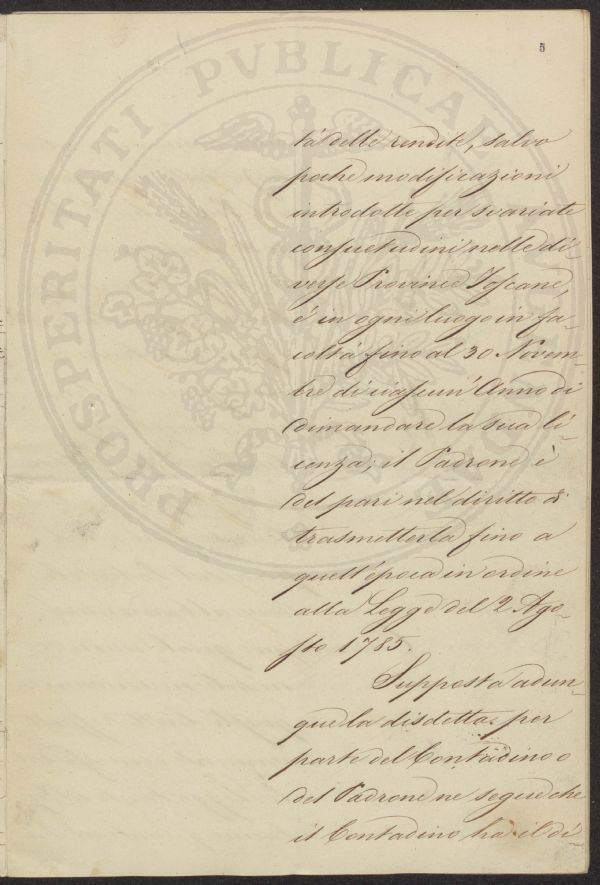 5
PROSPERITATI PVBLICAE
tà delle rendite, salvo
poche modificazioni
introdotte per svariate
consuetudini nelle di-
verse Province Toscane,
è in ogni luogo in fa-
coltà fino al 30 Novem-
bre di ciascun' Anno di
dimandare la sua li-
cenza; il Padrone è
del pari nel diritto di
trasmetterla fino a
quell'época in ordine
alla Legge del 2 Ago-
sto 1785.
Supposta adun-
que la disdetta per
parte del Contadino o
del Padrone ne segue che
il Contadino ha il di-